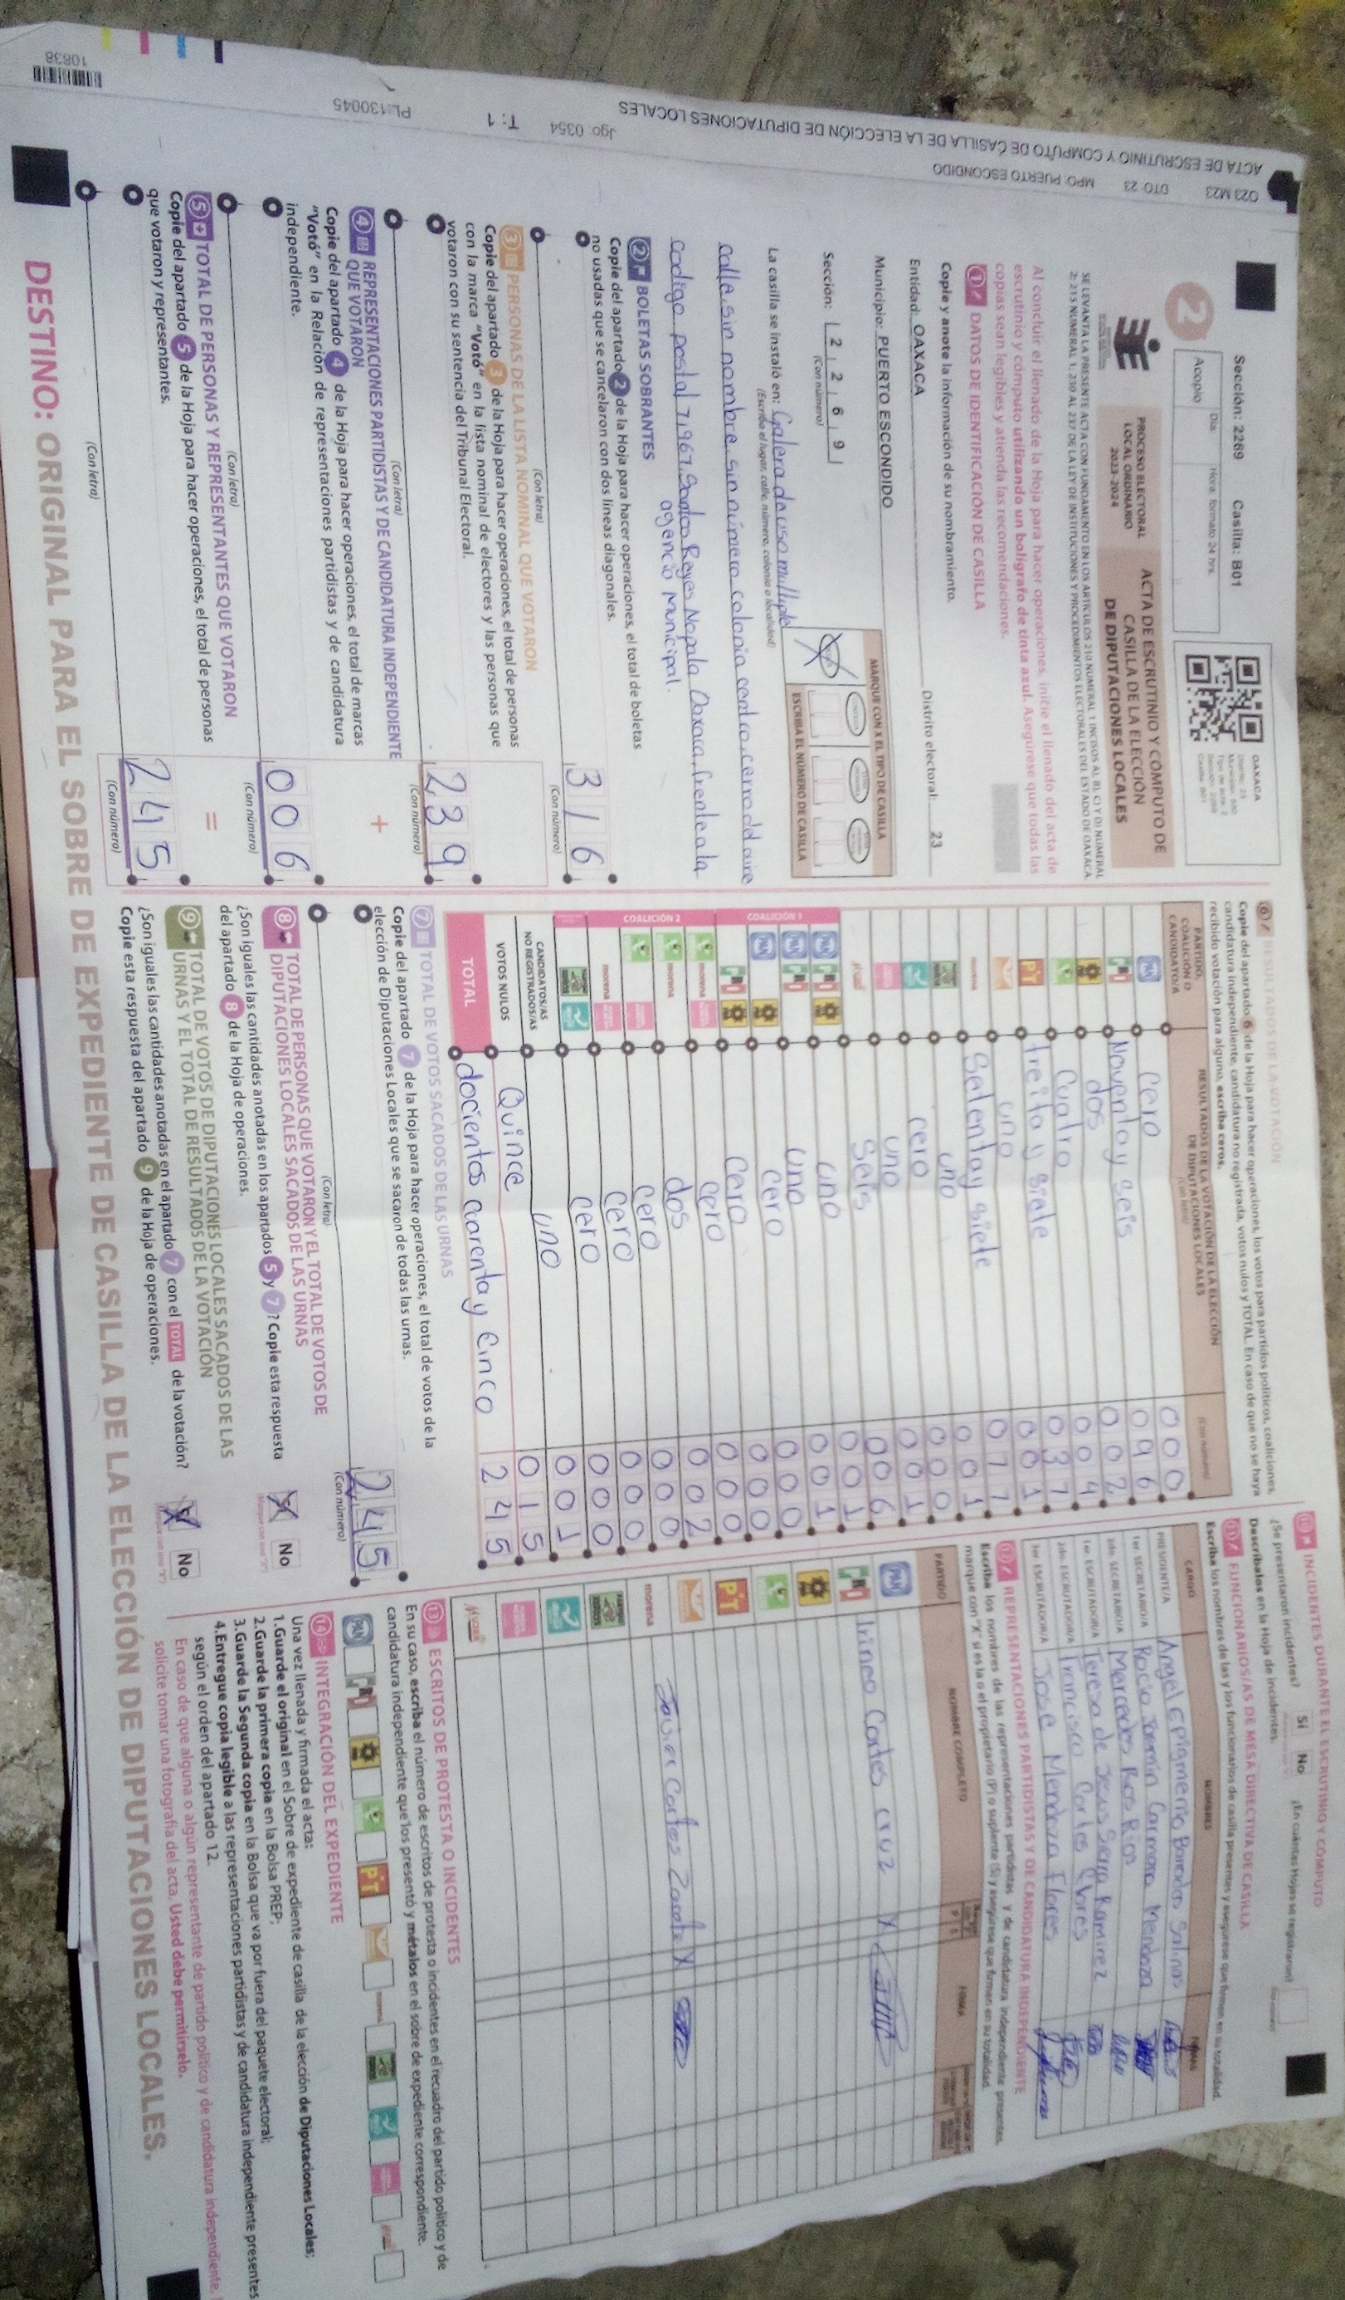 O23 M23 DTO: 23 MPO: PUERTO ESCONDIDO
ACTA DE ESCRUTINIO Y CÓMPUTO DE CASILLA DE LA ELECCIÓN DE DIPUTACIONES LOCALES
Jgo: 0354
T: 1
PL:130045
10838
Sección: 2269 Casilla: B01
OAXACA
2
Día: Hora: formato 24 hrs.
Acopio
PROCESO ELECTORAL
LOCAL ORDINARIO
2023-2024
ACTA DE ESCRUTINIO Y CÓMPUTO DE
CASILLA DE LA ELECCIÓN
DE DIPUTACIONES LOCALES
SE LEVANTA LA PRESENTE ACTA CON FUNDAMENTO EN LOS ARTÍCULOS 210 NUMERAL 1 INCISOS A), B), C) Y D); NUMERAL
2; 215 NUMERAL 1; 230 AL 237 DE LA LEY DE INSTITUCIONES Y PROCEDIMIENTOS ELECTORALES DEL ESTADO DE OAXACA.
Al concluir el llenado de la Hoja para hacer operaciones, inicie el llenado del acta de
escrutinio y cómputo utilizando un bolígrafo de tinta azul. Asegúrese que todas las
copias sean legibles y atienda las recomendaciones.
1 DATOS DE IDENTIFICACIÓN DE CASILLA
Copie y anote la información de su nombramiento.
Entidad: OAXACA Distrito electoral: 23
Municipio: PUERTO ESCONDIDO
Sección: 2 2 6 9
(Con número)
MARQUE CON X EL TIPO DE CASILLA
ESCRIBA EL NÚMERO DE CASILLA
La casilla se instaló en: Galera de uso multiple
(Escriba el lugar, calle, número, colonia o localidad)
calle. sin nombre. sin número colonia centro. cerro del aire
Codigo postal 71967. Santos Reyes Nopala Oaxaca. frente a la
agencia Municipal.
2 BOLETAS SOBRANTES
Copie del apartado 2 de la Hoja para hacer operaciones, el total de boletas
no usadas que se cancelaron con dos líneas diagonales.
316
(Con letra) (Con número)
3 PERSONAS DE LA LISTA NOMINAL QUE VOTARON
Copie del apartado 3 de la Hoja para hacer operaciones, el total de personas
con la marca "Votó" en la lista nominal de electores y las personas que
votaron con su sentencia del Tribunal Electoral.
239
(Con letra) (Con número)
+
4 REPRESENTACIONES PARTIDISTAS Y DE CANDIDATURA INDEPENDIENTE
QUE VOTARON
Copie del apartado 4 de la Hoja para hacer operaciones, el total de marcas
"Votó" en la Relación de representaciones partidistas y de candidatura
independiente.
006
(Con letra) (Con número)
=
5 TOTAL DE PERSONAS Y REPRESENTANTES QUE VOTARON
Copie del apartado 5 de la Hoja para hacer operaciones, el total de personas
que votaron y representantes.
245
(Con letra) (Con número)
6 RESULTADOS DE LA VOTACIÓN
Copie del apartado 6 de la Hoja para hacer operaciones, los votos para partidos políticos, coaliciones,
candidatura independiente, candidatura no registrada, votos nulos y TOTAL. En caso de que no se haya
recibido votación para alguno, escriba ceros.
PARTIDO,
COALICIÓN O
CANDIDATO/A
RESULTADOS DE LA VOTACIÓN DE LA ELECCIÓN
DE DIPUTACIONES LOCALES
(Con letra)
(Con número)
PAN cero 000
PRI Noventa y seis 096
dos 002
cuatro 004
PT Treita y siete 037
uno 001
morena Setenta y siete 077
uno 001
cero 000
uno 001
Seis 006
COALICIÓN 1
uno 001
uno 001
cero 000
cero 000
COALICIÓN 2
cero 000
dos 002
cero 000
cero 000
cero 000
CANDIDATOS/AS
NO REGISTRADOS/AS uno 001
VOTOS NULOS Quince 015
TOTAL docientos cuarenta y cinco 245
7 TOTAL DE VOTOS SACADOS DE LAS URNAS
Copie del apartado 7 de la Hoja para hacer operaciones, el total de votos de la
elección de Diputaciones Locales que se sacaron de todas las urnas.
245
(Con letra) (Con número)
8 TOTAL DE PERSONAS QUE VOTARON Y EL TOTAL DE VOTOS DE
DIPUTACIONES LOCALES SACADOS DE LAS URNAS
¿Son iguales las cantidades anotadas en los apartados 5 y 7? Copie esta respuesta
del apartado 8 de la Hoja de operaciones.
No
9 TOTAL DE VOTOS DE DIPUTACIONES LOCALES SACADOS DE LAS
URNAS Y EL TOTAL DE RESULTADOS DE LA VOTACIÓN
¿Son iguales las cantidades anotadas en el apartado 7 con el TOTAL de la votación?
Copie esta respuesta del apartado 9 de la Hoja de operaciones.
No
INCIDENTES DURANTE EL ESCRUTINIO Y CÓMPUTO
¿Se presentaron incidentes? Sí No ¿En cuántas Hojas se registraron?
Descríbalos en la Hoja de incidentes.
11 FUNCIONARIOS/AS DE MESA DIRECTIVA DE CASILLA
Escriba los nombres de las y los funcionarios de casilla presentes y asegúrese que firmen en su totalidad.
CARGO NOMBRES FIRMAS
PRESIDENTE/A Angel Epigmenio Barradas Salinas
1er. SECRETARIO/A Rocio Jazmin Carmona Mendoza
2do. SECRETARIO/A Mercedes Rios Rios
1er. ESCRUTADOR/A Teresa de Jesus Sierra Ramirez
2do. ESCRUTADOR/A Francisco Cortes
3er. ESCRUTADOR/A Jose Mendoza Flores
12 REPRESENTACIONES PARTIDISTAS Y DE CANDIDATURA INDEPENDIENTE
Escriba los nombres de las representaciones partidistas y de candidatura independiente presentes,
marque con "X" si es la o el propietario (P) o suplente (S) y asegúrese que firmen en su totalidad.
PARTIDO NOMBRE COMPLETO FIRMA
PAN
PRI Irineo Cortes Cruz X
PT
morena Cortes Zarate X
13 ESCRITOS DE PROTESTA O INCIDENTES
En su caso, escriba el número de escritos de protesta o incidentes en el recuadro del partido político y de
candidatura independiente que los presentó y métalos en el sobre de expediente correspondiente.
14 INTEGRACIÓN DEL EXPEDIENTE
Una vez llenada y firmada el acta:
1.Guarde el original en el Sobre de expediente de casilla de la elección de Diputaciones Locales;
2.Guarde la primera copia en la Bolsa PREP;
3.Guarde la Segunda copia en la Bolsa que va por fuera del paquete electoral;
4.Entregue copia legible a las representaciones partidistas y de candidatura independiente presentes
según el orden del apartado 12.
En caso de que alguna o algún representante de partido político y de candidatura independiente,
solicite tomar una fotografía del acta, Usted debe permitírselo.
DESTINO: ORIGINAL PARA EL SOBRE DE EXPEDIENTE DE CASILLA DE LA ELECCIÓN DE DIPUTACIONES LOCALES.